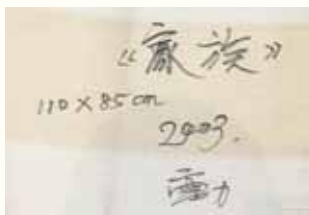 《家族》
110×85cm
2003.